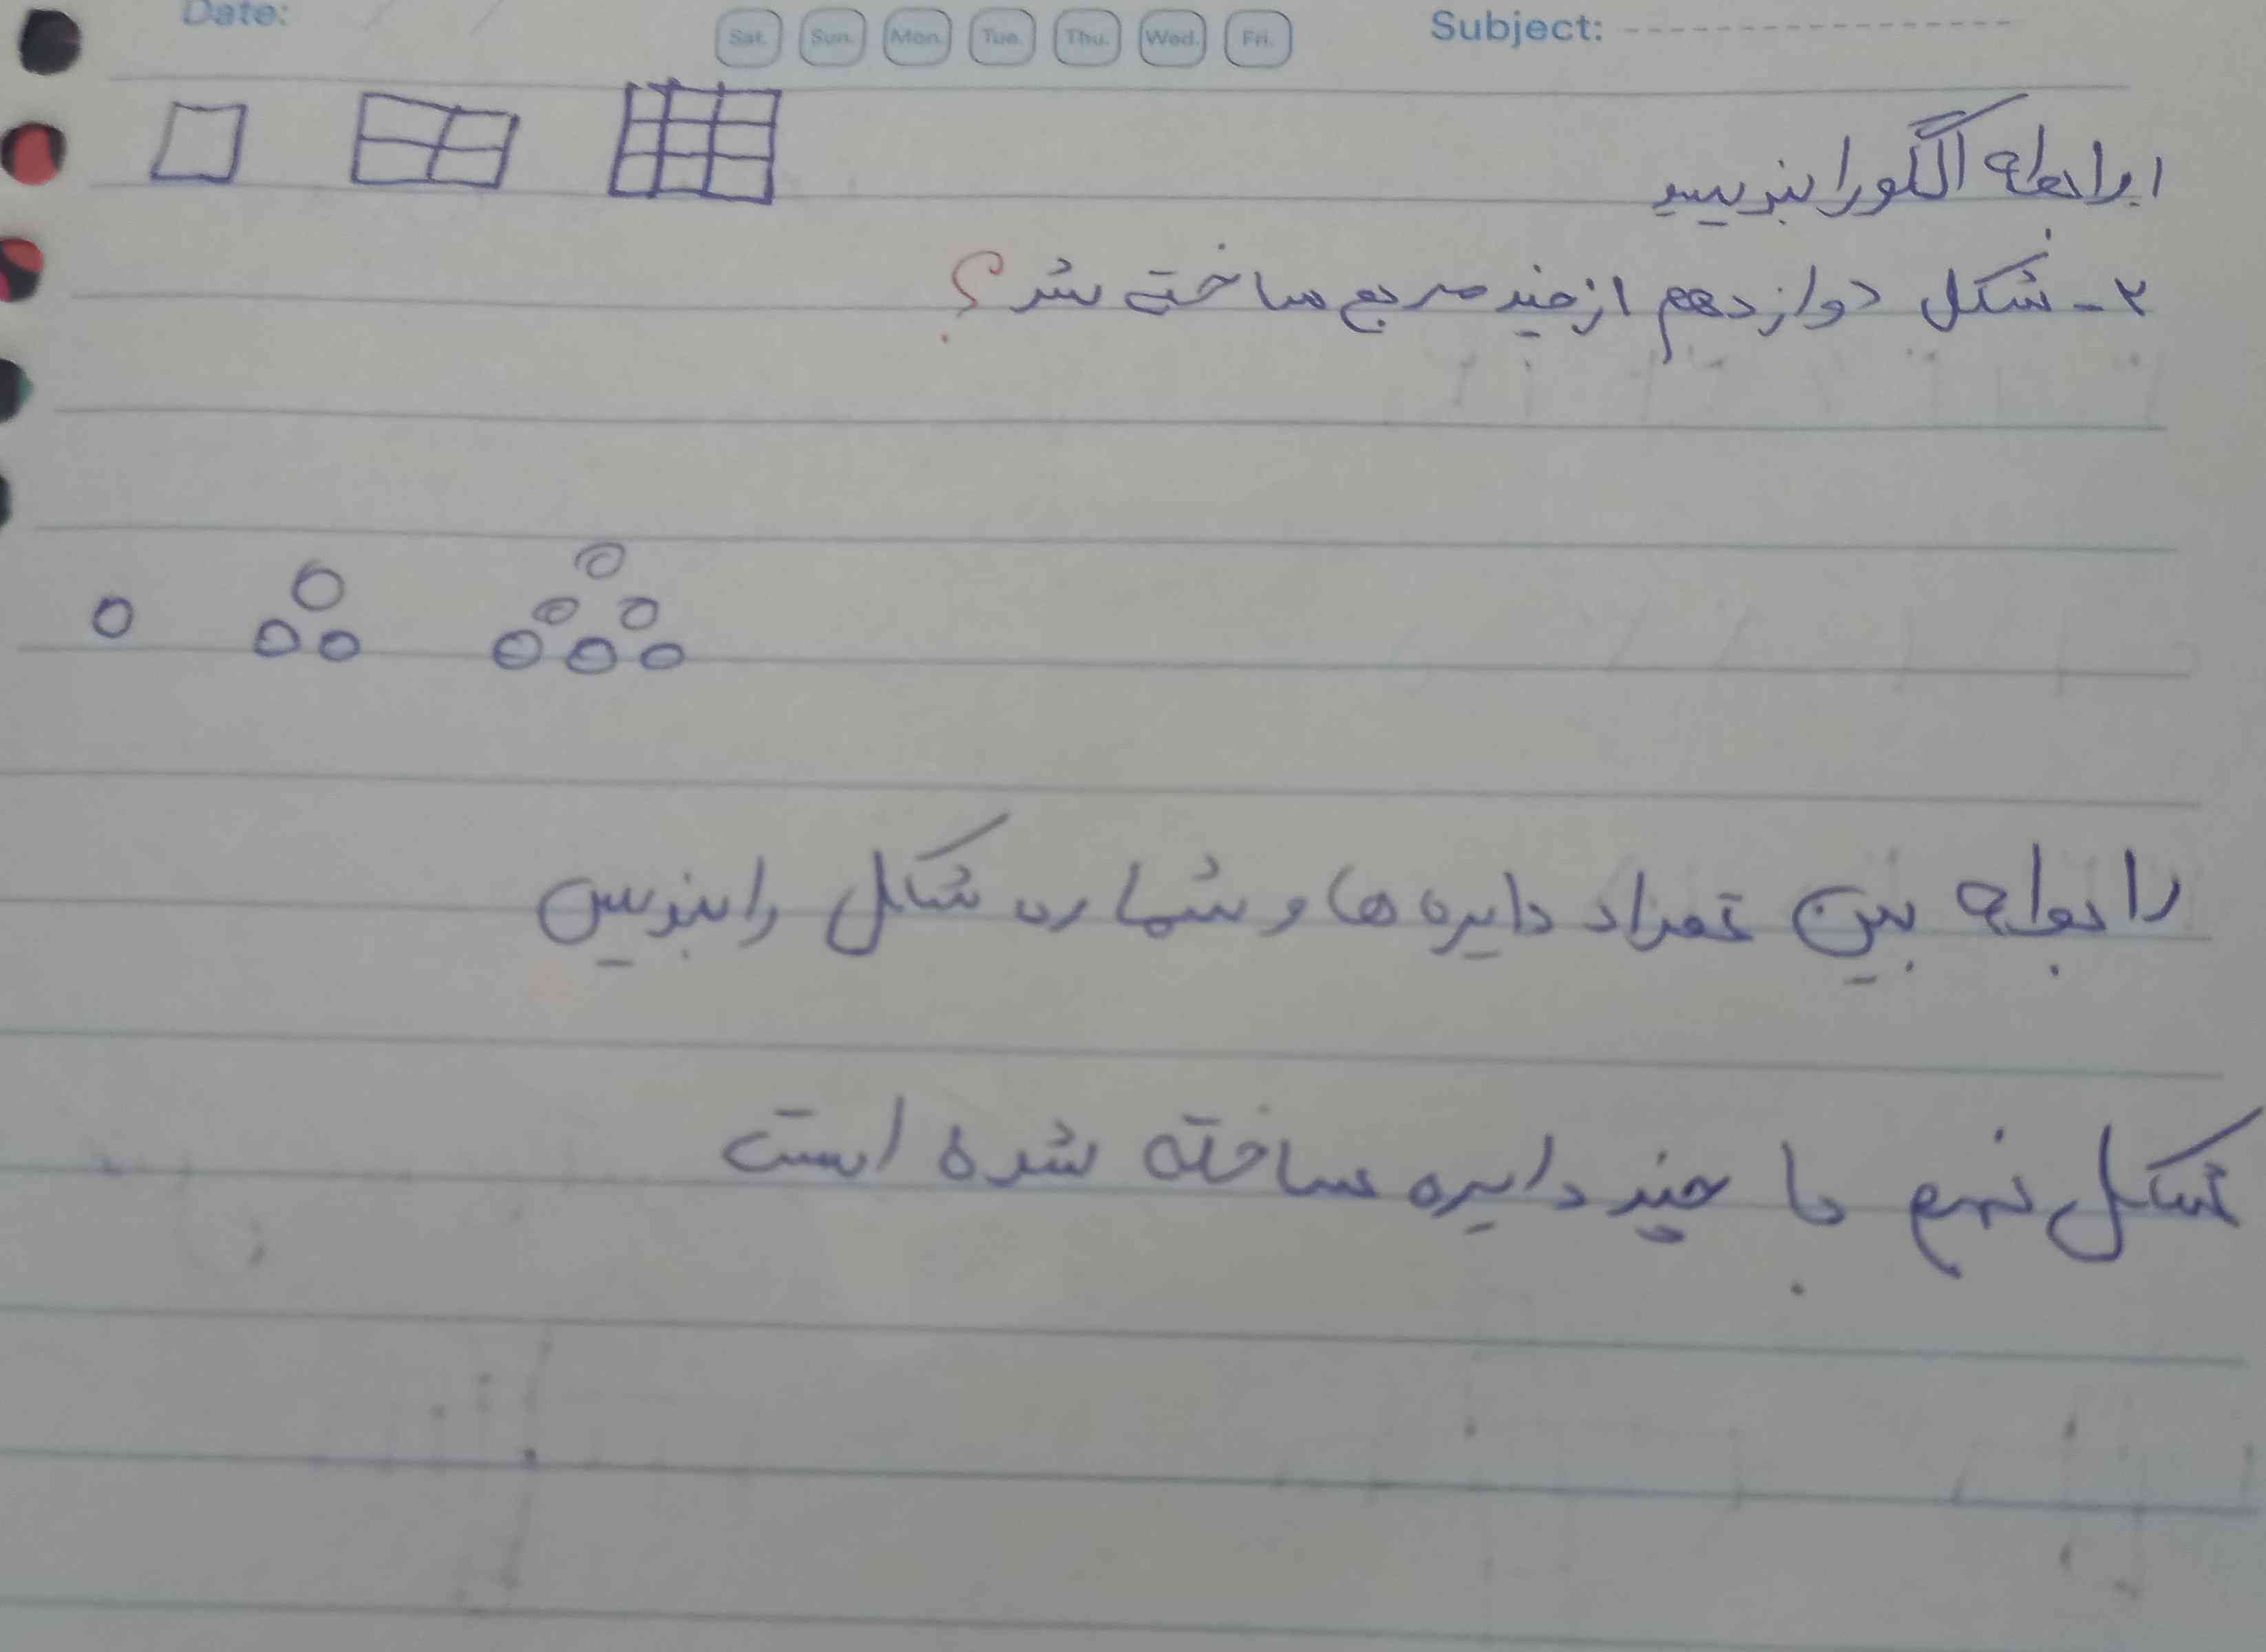 Date:
Sat. Sun. Mon. Tue. Thu. Wed. Fri.
Subject:
رابطه الگو را بنویسید
۲- شکل دوازدهم از چند مربع ساخته شد؟
رابطه بین تعداد دایره ها و شماره شکل را بنویس
شکل نهم با چند دایره ساخته شده است